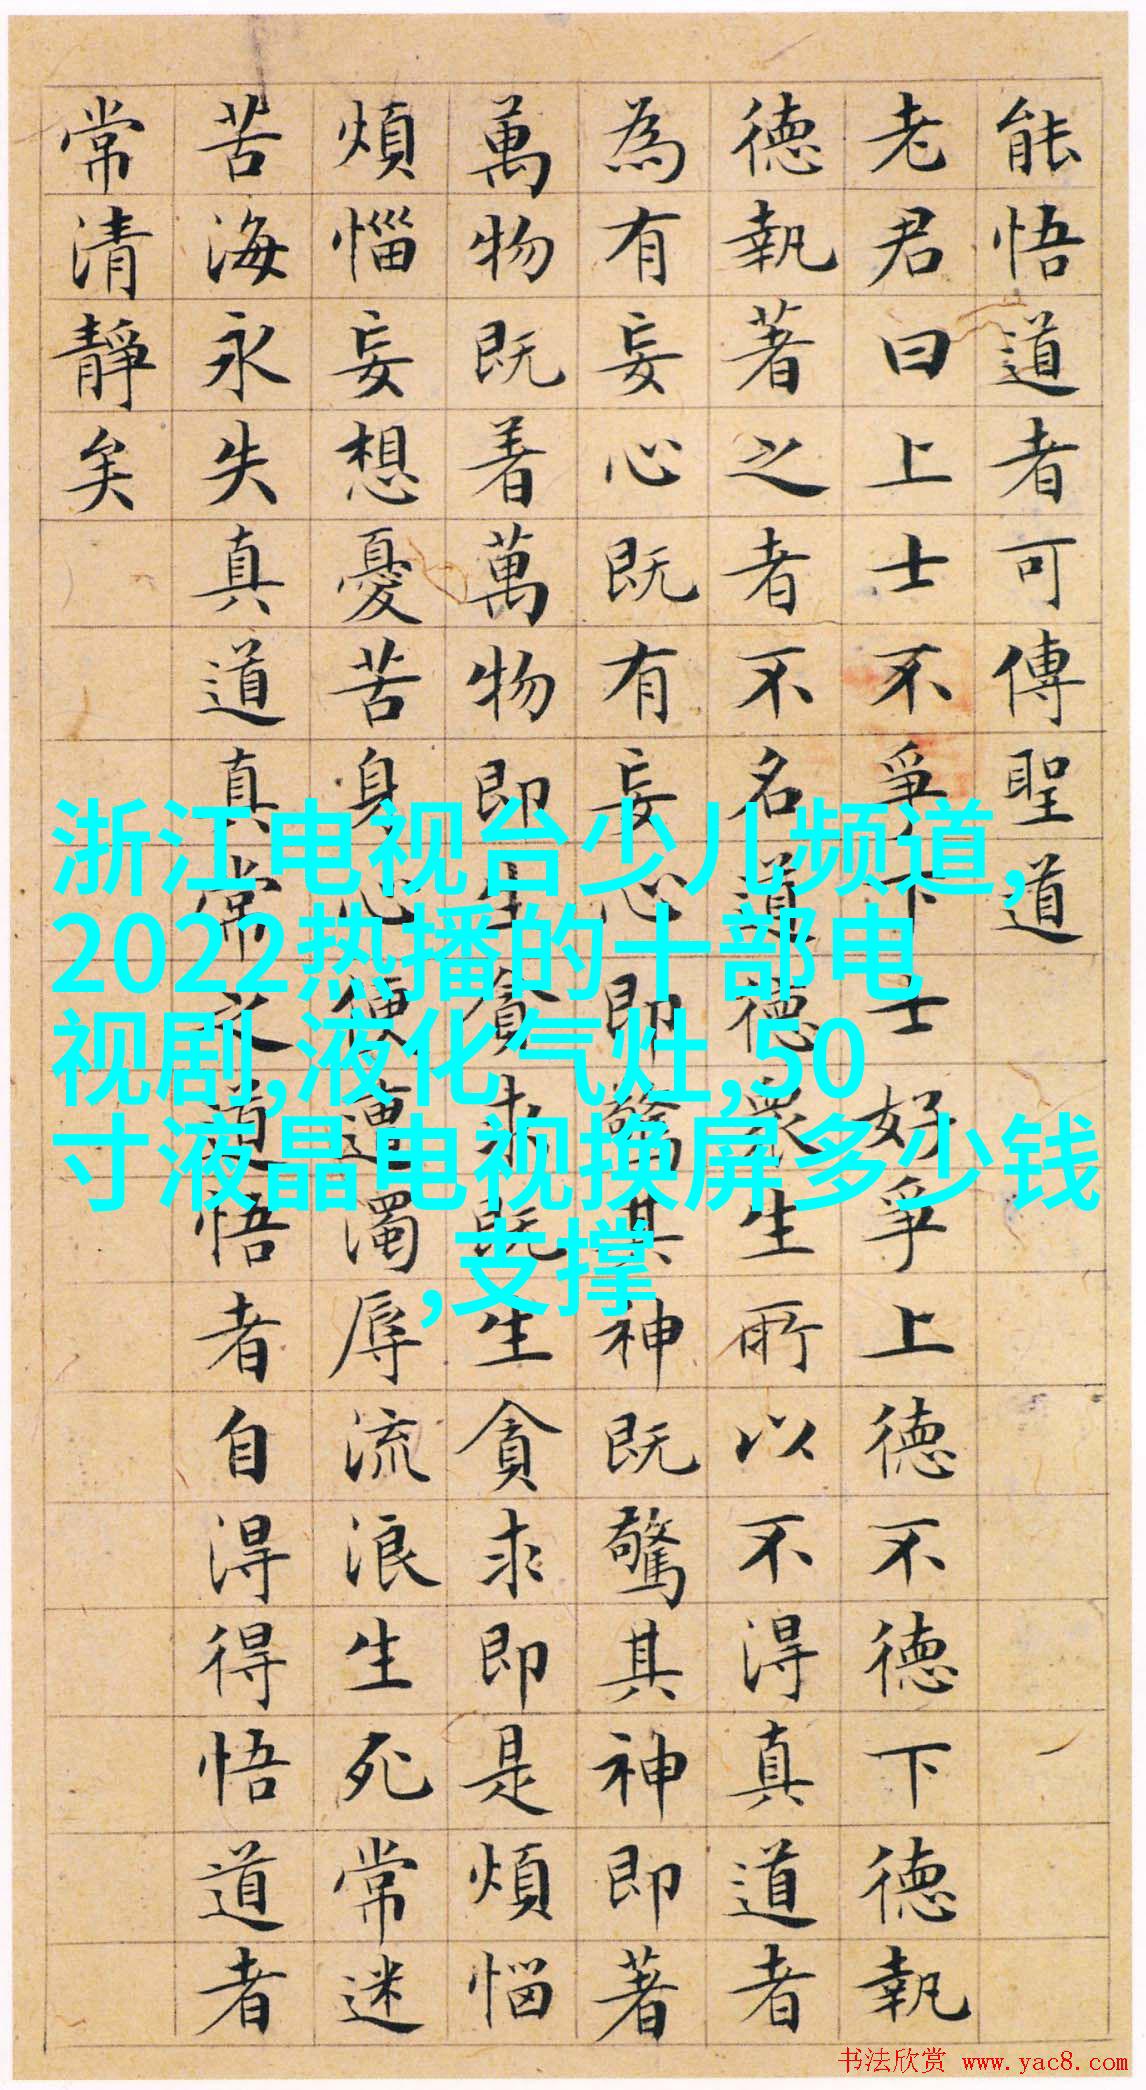 能悟道者可傳聖道
老君曰上士不爭下士好爭上德不德下德執
德執著之者不名道德眾生所以不得真道者
為有妄心既有妄心即驚其神既驚其神即著
萬物既着萬物即生貪求既生貪求即是煩惱
煩惱妄想憂苦身心便遭濁辱流浪生死常迷
苦海永失真道真常之道悟者自得得悟道者
常清靜矣
浙江电视台少儿频道,
2022热播的十部电
视剧,液化气灶,50
寸液晶电视换屏多少钱
,支撑
书法欣赏 www.yac8.com